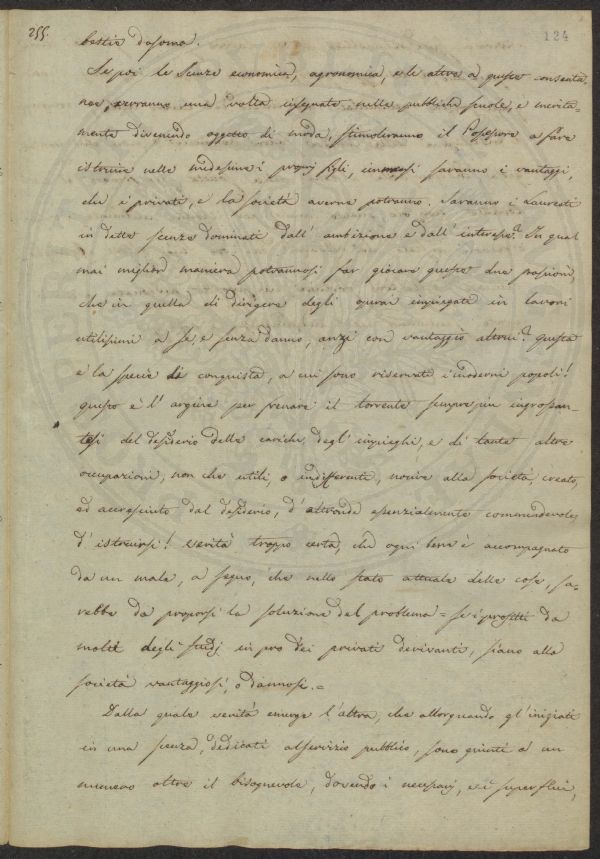 255.
124
bestie da soma.
Se poi le Scienze economica, agronomica, e le altre a queste consenta-
nee, verranno una volta insegnate nelle pubbliche scuole, e merita-
mente divenendo oggetto di moda, stimoleranno il Possessore a fare
istruire nelle medesime i proprj figli, immensi saranno i vantaggi,
che i privati, e la società averne potranno. Saranno i Laureati
in dette scienze dominati dall' ambizione e dall' interesse? In qual
mai miglior maniera potrannosi far giocare queste due passioni
che in quella di dirigere degli operai impiegati in lavori
utilissimi a se, e senza danno, anzi con vantaggio altrui? Questa
è la specie di conquista, a cui sono riservati i moderni popoli!
questo è l' argine per frenare il torrente sempre più ingrossan-
tesi del desiderio delle cariche, degl' impieghi, e di tante altre
occupazioni, non che utili, o indifferenti, nocive alla società, creato,
ed accresciuto dal desiderio, d' altronde essenzialmente commendevole
d' istruirsi! Verità troppo certa, che ogni bene è accompagnato
da un male, a segno, che nello stato attuale delle cose, sa-
rebbe da proporsi la soluzione del problema = se i profitti da
molti degli studj in pro dei privati derivanti, siano alla
società vantaggiosi, o dannosi. =
Dalla quale verità emerge l' altra, che allorquando gl' iniziati
in una scienza, dedicati al servizio pubblico, sono giunti a un
numero oltre il bisognevole, dovendo i necessarj, e i superflui,